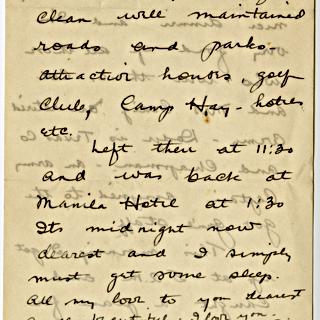 clean well maintained
roads and parks -
attractive houses, golf
Club, Camp Hay - hotels
etc.
Left there at 11:30
and was back at
Manila Hotel at 1:30
Its midnight now
dearest and I simply
must get some sleep.
All my love to you dearest
I love you